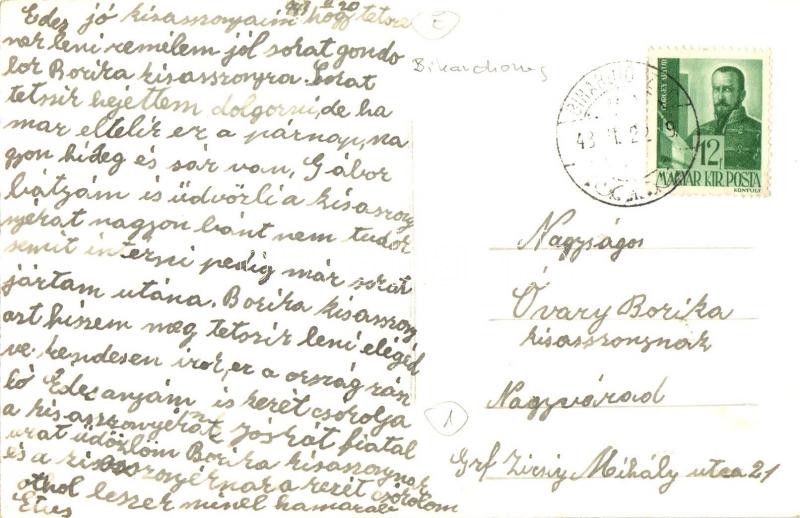 943 II 20
Edes jó kisasszonyaim hogy tetsze
nek leni remélem jól sokat gondo
lok Borika kisasszonyra. Sokat
tetszik hejettem dolgozni, de ha
mar eltelik ez a párnap, na
gyon hideg és sár van. Gábor
bátyám is üdvözli a kisasszony
nyékat nagyon bánt nem tudok
semit intézni pedig már sokat
jártam utána. Borika kisasszony
azt hiszem meg tetszik leni eléged
ve. rendesen irok, ez a ország rán
ló Edesanyám is kezét csokolja
a kisasszonyéknak Jóskát fiatal
urat üdözlöm Borika kisasszonynak
és a kisasszonyéknak a kezét csokolom
othol leszek minél hamarab
Etus
Bikarchoneg
BIHARDIÓ
43 II. 22 9
GÖRGEY ARTUR
12f
MAGYAR KIR. POSTA
KONTULY
Nagyságos
Óvary Borika
kisasszonynak
Nagyvárad
Grf Zichy Mihály utca 21
1